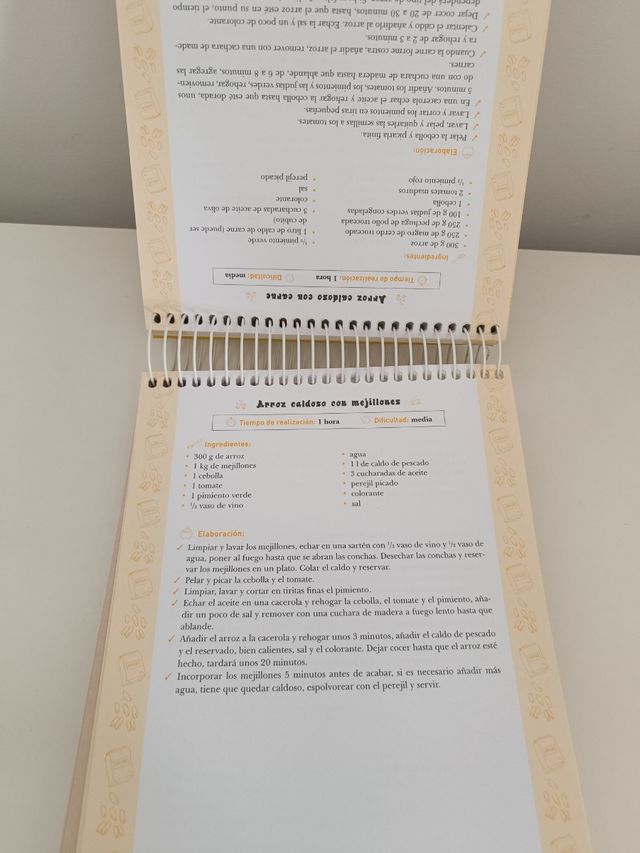 Arroz caldoso con carne
Tiempo de realización: 1 hora
Dificultad: media
Ingredientes:
• 300 g de arroz
• 250 g de magro de cerdo troceado
• 250 g de pechuga de pollo troceada
• 100 g de judías verdes congeladas
• 1 cebolla
• 2 tomates maduros
• ½ pimiento rojo
• ½ pimiento verde
• 1 litro de caldo de carne (puede ser
de cubito)
• 3 cucharadas de aceite de oliva
• colorante
• sal
• perejil picado
Elaboración:
✓ Pelar la cebolla y picarla finita.
✓ Lavar, pelar y quitarles las semillas a los tomates.
✓ Lavar y cortar los pimientos en tiras pequeñas.
✓ En una cacerola echar el aceite y rehogar la cebolla hasta que esté dorada, unos
5 minutos. Añadir los tomates, los pimientos y las judías verdes, rehogar, removien-
do con una cuchara de madera hasta que ablande, de 6 a 8 minutos, agregar las
carnes.
✓ Cuando la carne forme costra, añadir el arroz, remover con una cuchara de made-
ra y rehogar de 2 a 3 minutos.
✓ Calentar el caldo y añadirlo al arroz. Echar la sal y un poco de colorante.
✓ Dejar cocer de 20 a 30 minutos, hasta que el arroz esté en su punto, el tiempo
dependerá del tipo de arroz.
Arroz caldoso con mejillones
Tiempo de realización: 1 hora
Dificultad: media
Ingredientes:
• 300 g de arroz
• 1 kg de mejillones
• 1 cebolla
• 1 tomate
• 1 pimiento verde
• ½ vaso de vino
• agua
• 1 l de caldo de pescado
• 3 cucharadas de aceite
• perejil picado
• colorante
• sal
Elaboración:
✓ Limpiar y lavar los mejillones, echar en una sartén con ½ vaso de vino y ½ vaso de
agua, poner al fuego hasta que se abran las conchas. Desechar las conchas y reser-
var los mejillones en un plato. Colar el caldo y reservar.
✓ Pelar y picar la cebolla y el tomate.
✓ Limpiar, lavar y cortar en tiritas finas el pimiento.
✓ Echar el aceite en una cacerola y rehogar la cebolla, el tomate y el pimiento, aña-
dir un poco de sal y remover con una cuchara de madera a fuego lento hasta que
ablande.
✓ Añadir el arroz a la cacerola y rehogar unos 3 minutos, añadir el caldo de pescado
y el reservado, bien calientes, sal y el colorante. Dejar cocer hasta que el arroz esté
hecho, tardará unos 20 minutos.
✓ Incorporar los mejillones 5 minutos antes de acabar, si es necesario añadir más
agua, tiene que quedar caldoso, espolvorear con el perejil y servir.